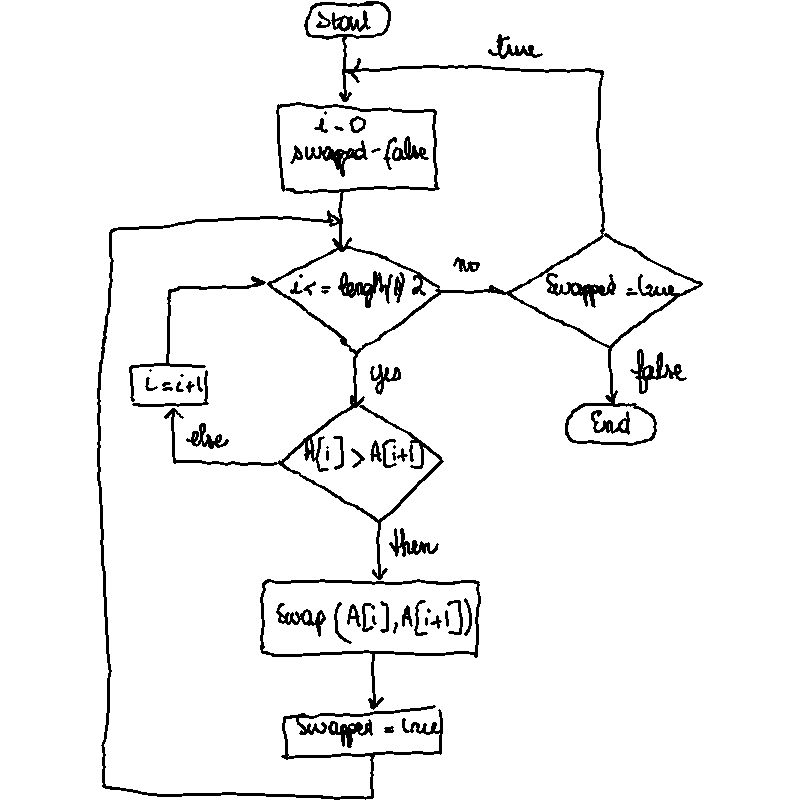 Start
true
i - 0
swaped - false
i <= length(A) 2
no
Swapped = true
yes
false
i = i+1
End
else
A[i] > A[i+1]
then
Swap (A[i], A[i+1])
Swapped = true